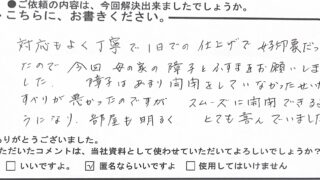 ●ご依頼の内容は、今回解決出来ましたでしょうか。
こちらに、お書きください。
対応もよく丁寧で1日での仕上げで好印象だっ
たので今回母の家の障子とふすまをお願いしま
した。障子はあまり開閉をしていなかったせい
すべりが悪かったのですが スムーズに開閉できる
うになり、部屋も明るく とても喜んでいました
ありがとうございました。
ただいたコメントは、当社資料として使わせていただいてよろしいでしょうか?
いいですよ。 ☑ 匿名ならいいですよ □ 使用してはいけません